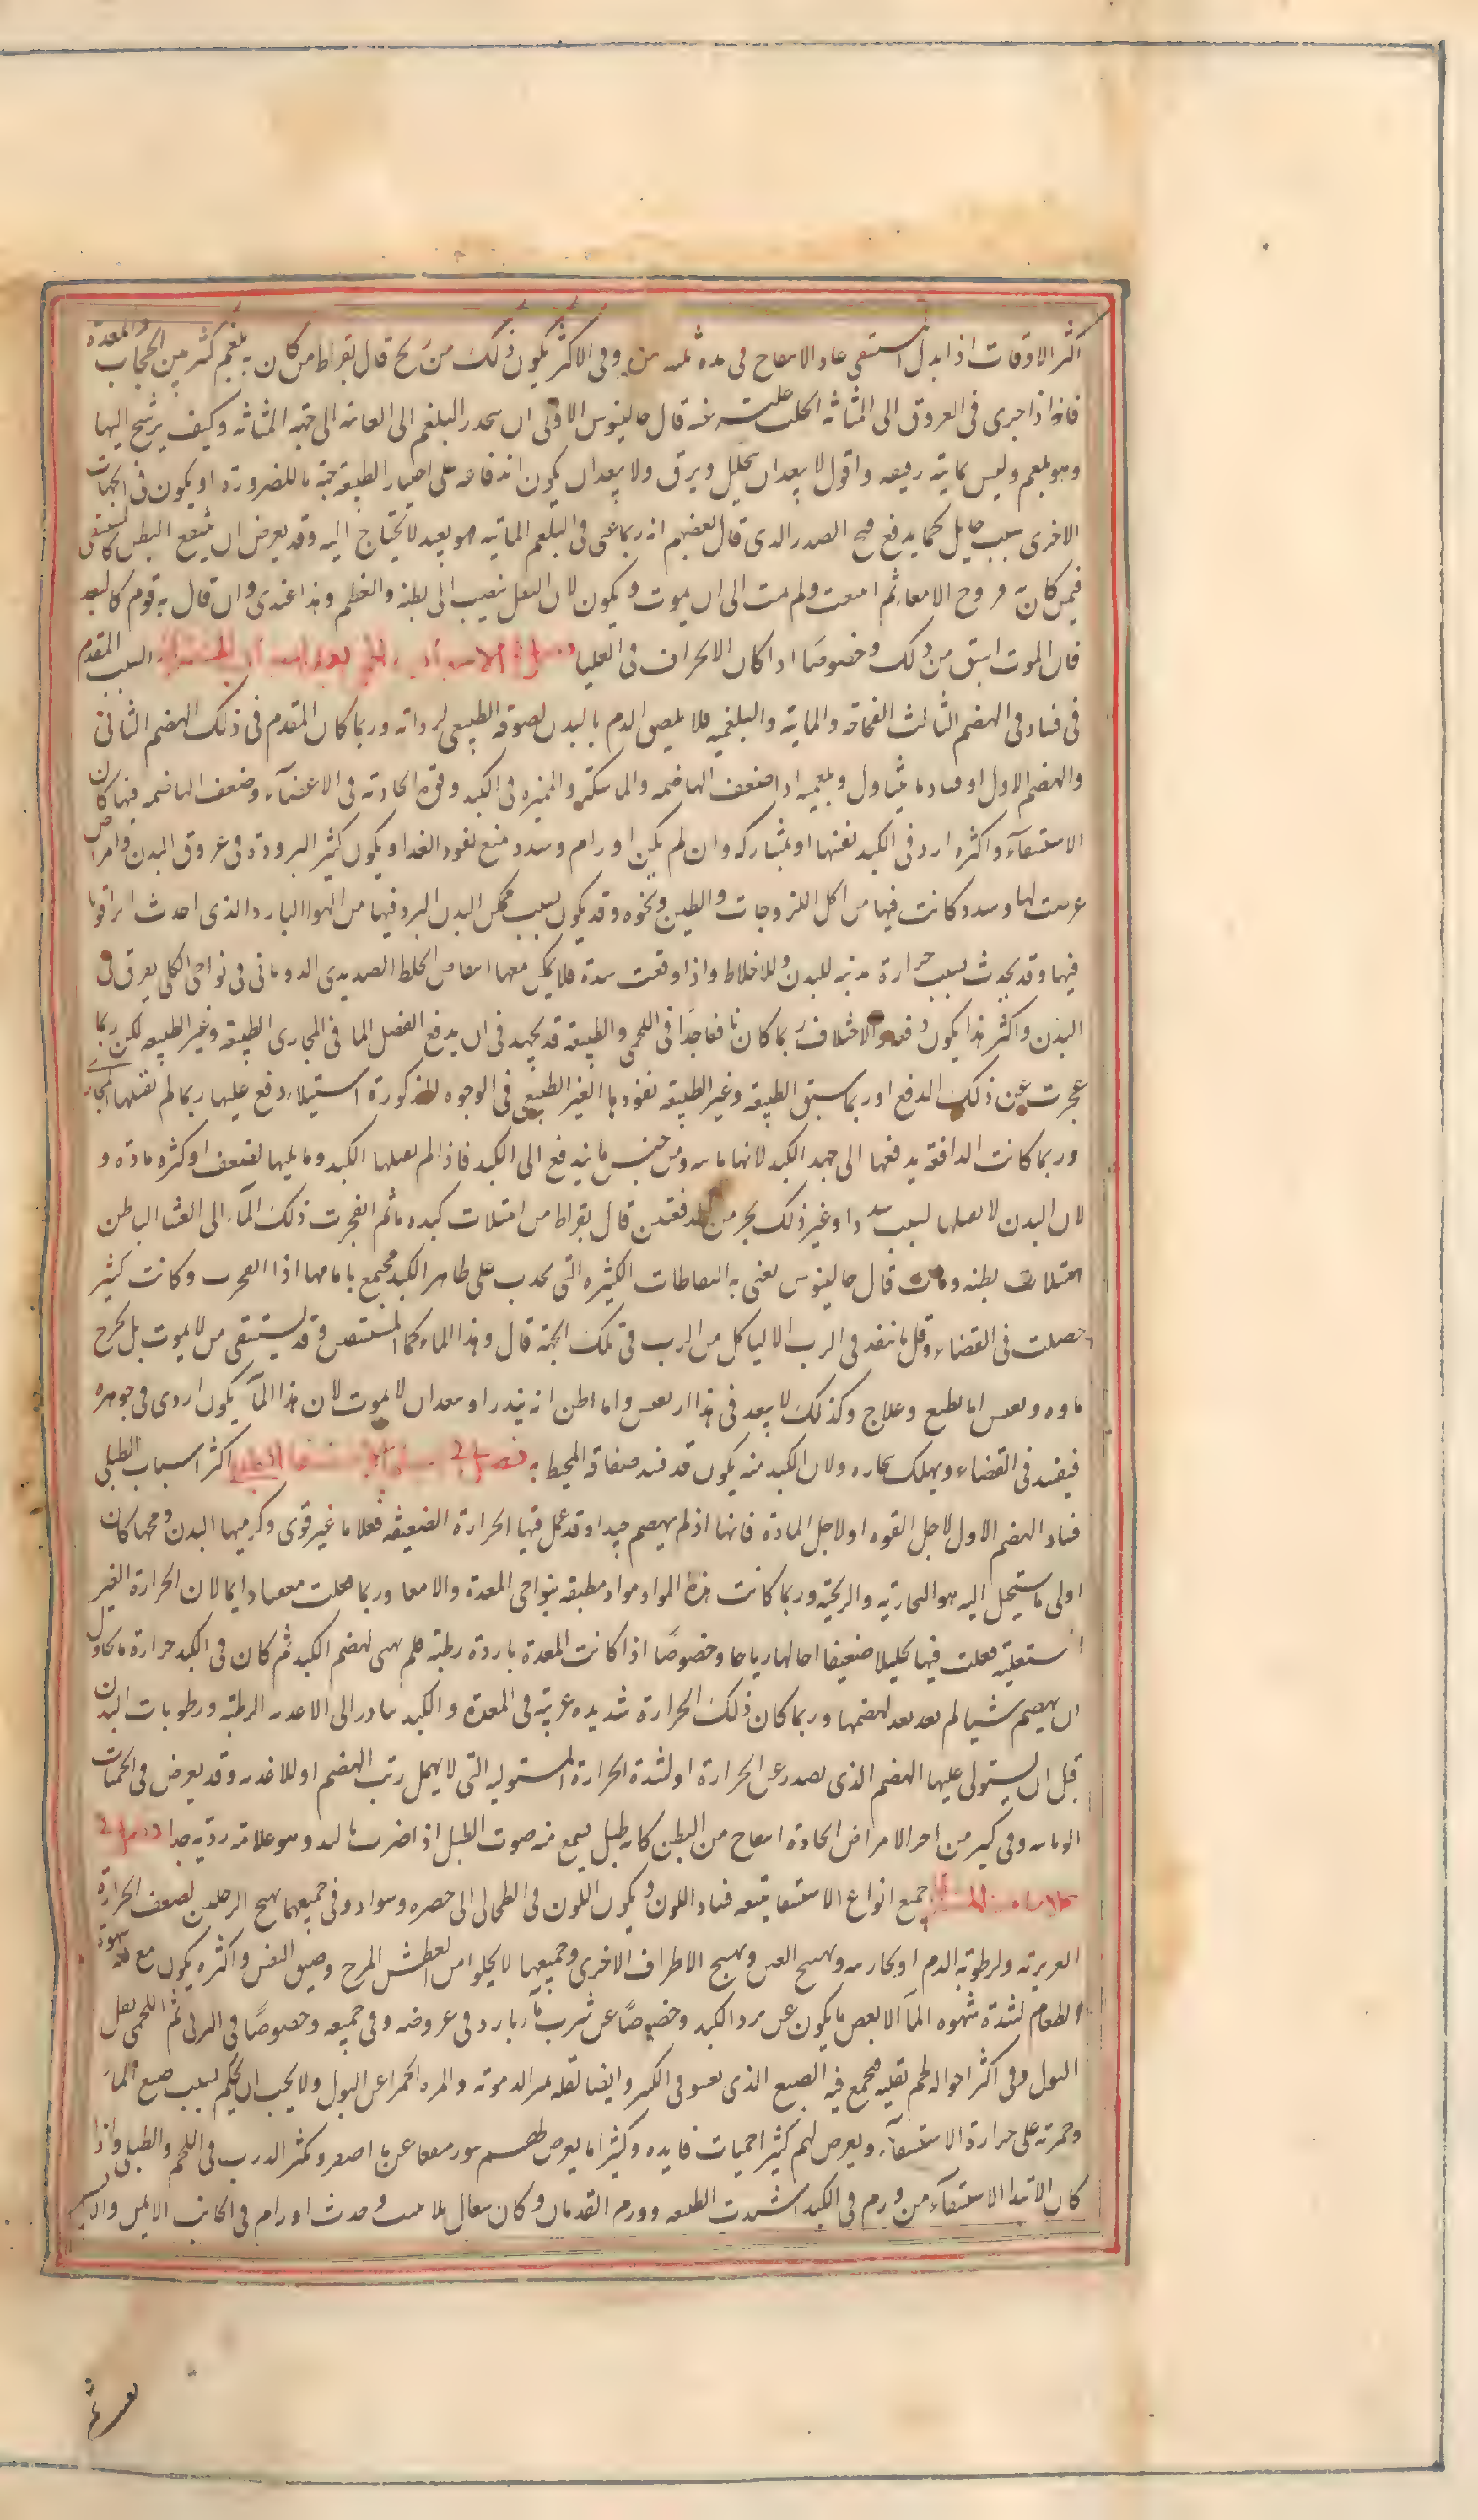 اكثر الاوقات اذا بدل استسقى عاد الانتفاخ فى مدة ثلثة وفى الاكثر يكون ذلك من ريح قال بقراط من كان به بلغم كثير بين الحجاب والمعدة
فانه اذا جرى فى العروق الى المثانة انحلت علته عنه قال جالينوس الاولى ان ينحدر البلغم الى العانة الى جهة المثانة وكيف يرشح اليها
وهو بلغم وليس بمائية رقيقة واقول لا يبعد ان يتحلل ويرق ولا يبعد ان يكون اندفاعه على اختيار الطبيعة جهة ما للضرورة او يكون فى الجهات
الاخرى سبب حايل كما يدفع قيح الصدر الذى قال بعضهم انه ربما عنى فى البلغم المائية هو بعيد لا يحتاج اليه وقد يعرض ان ينتفخ البطن كالمستسقى
فيمن كان به قروح الامعاء ثم انتقبت ولم يمت الى ان يموت ويكون لان الثفل ينصب الى بطنه والعظم وهذا عندى وان قال به قوم كالبعيد
فان الموت اسبق من ذلك وخصوصًا اذا كان الانخراق فى العليا فصل السبب المقدم
فى فساد فى الهضم الثالث الفجاجة والمائية والبلغمية فلا يلصق الدم بالبدن لصوقه الطبيعى لرداته وربما كان المقدم فى ذلك الهضم الثانى
والهضم الاول او فساد ما يتناول وبلغميه اذا ضعف الهاضمه والماسكة والمميزه فى الكبد وقوة الجاذبة فى الاعضآء وضعف الهاضمه فيها كان
الاستسقآء واكثره لبرد فى الكبد نفسها او بمشاركه وان لم يكن اورام وسدد تمنع نفوذ الغدا ويكون كثير البرودة فى عروق البدن وامراض
عرضت لها وسدد كانت فيها من اكل اللزوجات والطين ونحوه وقد يكون بسبب تمكن البدن البرد فيها من الهوا البارد الذى احدث اثرا قويا
فيها وقد يحدث بسبب حرارة مذيبه للبدن وللاخلاط واذا وقعت سدة فلا يمكن معها انتفاض الخلط الصديدى الذوبانى فى نواحى الكلى تفرق فى
البدن واكثر هذا يكون دفعة والاختلاف ربما كان نافعا جدا فى اللحمى والطبيعة قد تجهد فى ان يدفع الفضل المائى فى المجارى الطبيعة وغير الطبيعه لكن ربما
عجزت عن ذلك الدفع او ربما سبق الطبيعة وغير الطبيعة نفوذها الغير الطبيعى فى الوجوه المذكورة استيلاء دفع عليها ربما لم تقبلها المجارى
وربما كانت الدافعة يدفعها الى جهة الكبد لانها مائيه ومن جنس ما يندفع الى الكبد فاذا لم تقبلها الكبد وما يليها لضعف او كثرة مادة و
لان البدن لا يقبلها لسبب سدد او غير ذلك تحير من الدفعتين قال بقراط من امتلات كبده ماء ثم انفجرت ذلك المآء الى الغشا الباطن
امتلات بطنه ومات قال جالينوس يعنى به النفاطات الكثيره التى تحدث على ظاهر الكبد تجتمع بامامها اذا انفجرت وكانت كثير
حصلت فى الفضاء وقل ما تنفذ فى الثرب الا لتاكل من الثرب فى تلك الجهة قال وهذا الماء كماء المستسقى وقد يستسقى من لا يموت بل تخرج
ماوه ويعيش اما بطبع وعلاج وكذلك لا يبعد فى هذا ان يعيش واما اظن انه يندر او يبعد ان لا يموت لان هذا المآء يكون اردى فى جوهره
فيفسد فى الفضاء ويهلك بخاره ولان الكبد منه يكون قد فسد صفاقه المحيط به فصل اكثر اسباب الطبلى
فساد الهضم الاول لاجل القوه او لاجل المادة فانها اذ لم ينهضم جيدا وقد عمل فيها الحرارة الضعيفة فعلا ما غير قوى وكرهيها البدن ومجها كان
اولى ما يستحيل اليه هو البخارية والريحية وربما كانت هذه المواد مواد مطيفة بنواحى المعدة والامعا وربما فعلت مغصا دايما لان الحرارة الغير
المستعلية فعلت فيها تحليلا ضعيفا احالها رياحا وخصوصًا اذا كانت المعدة باردة رطبة فلم تهيى لهضم الكبد ثم كان فى الكبد حرارة ما تحاول
ان يهضم شيا لم يعد بعد لهضمها وربما كان ذلك الحرارة شديده غريبة فى المعدة والكبد تبادر الى الاغذيه الرطبة ورطوبات البدن
قبل ان يستولى عليها الهضم الذى يصدر عن الحرارة او لشدة الحرارة المستوليه التى لا يمهل رتب الهضم او للاغذيه وقد يعرض فى الحميات
الوبائيه وفى كثير من اخر الامراض الحادة انتفاخ من البطن كانه طبل يسمع منه صوت الطبل اذا ضرب باليد وهو علامة رديه جدا فصل
علامات جميع انواع الاستسقا يتبعه فساد اللون ويكون اللون فى الطحالى الى خضره وسواد وفى جميعها تهيج الرجلين لضعف الحرارة
الغريزية ولرطوبة الدم او بخاريته وتهيج العين وتهيج الاطراف الاخرى وجميعها لا يخلوا من العطش المبرح وضيق النفس واكثره يكون مع قلة شهوة
الطعام لشدة شهوه المآء الا بعض ما يكون عن برد الكبد وخصوصًا عن شرب مآء بارد فى غير وقته وفى جميعه وخصوصًا فى الزقى ثم اللحمى يقل
البول وفى اكثر احواله ثم لقلته تجتمع فيه الصبغ الذى يفشو فى الكثير وايضا لقلة تميز الدمويه والمرة الحمرا عن البول ولا يجب ان يحكم بسبب صبغ المآء
وحمرته على حرارة الاستسقآء ويعرض لهم كثيرا حميات فاتره وكثيرا ما يعرض لهم بثور تنفقا عن ماء اصفر وتكثر الذرب فى اللحمى والطبلى واذا
كان الابتدا الاستسقآء من ورم فى الكبد اشتدت الطبيعه وورم القدمان وكان سعال بلا نفث وحدث اورام فى الجانب الايمن والايسر